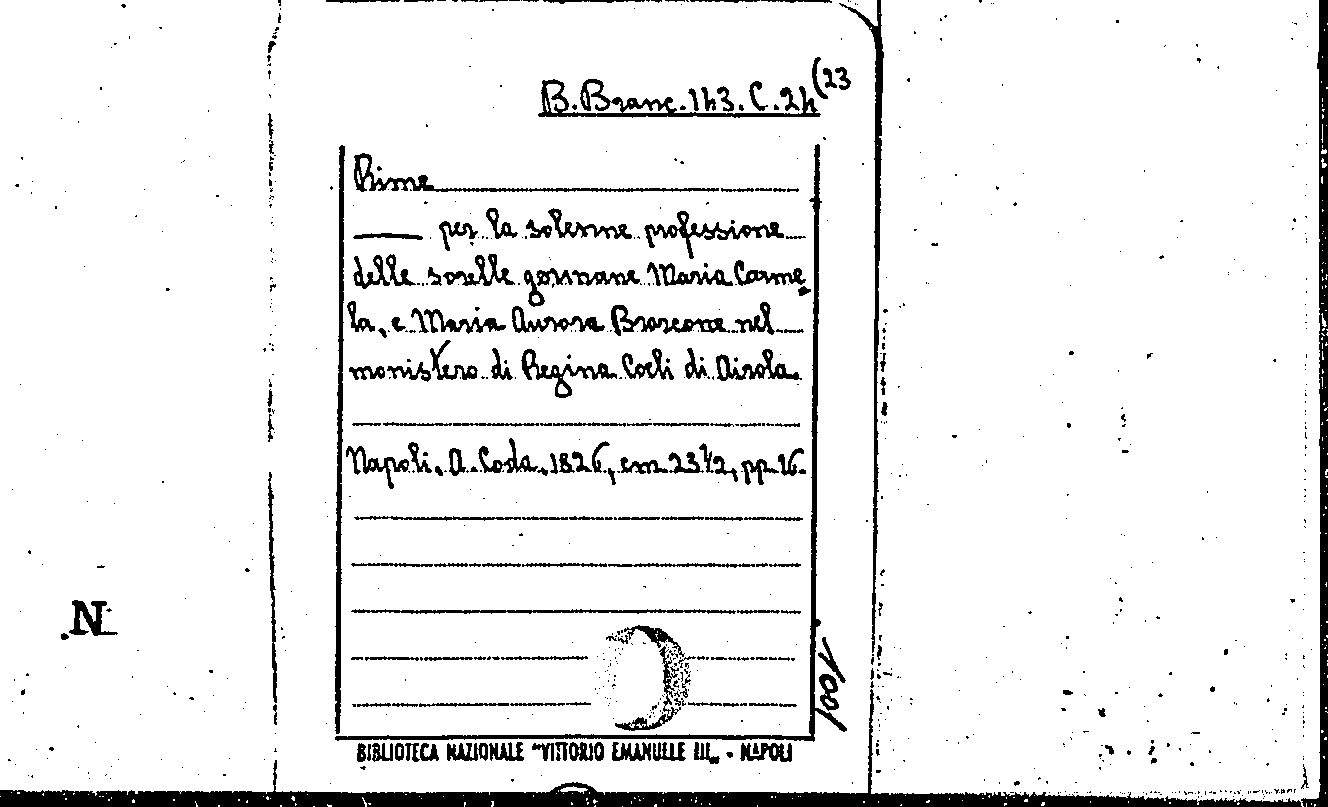 B. Branc. 143. C. 24 (23
Rime
—— per la solenne professione
delle sorelle germane Maria Carme
la, e Maria Aurora Broscone nel
monistero di Regina Coeli di Airola.
Napoli, A. Coda, 1826, cm 23 1/2, pp. 16.
1001
N
BIBLIOTECA NAZIONALE "VITTORIO EMANUELE III„ - NAPOLI